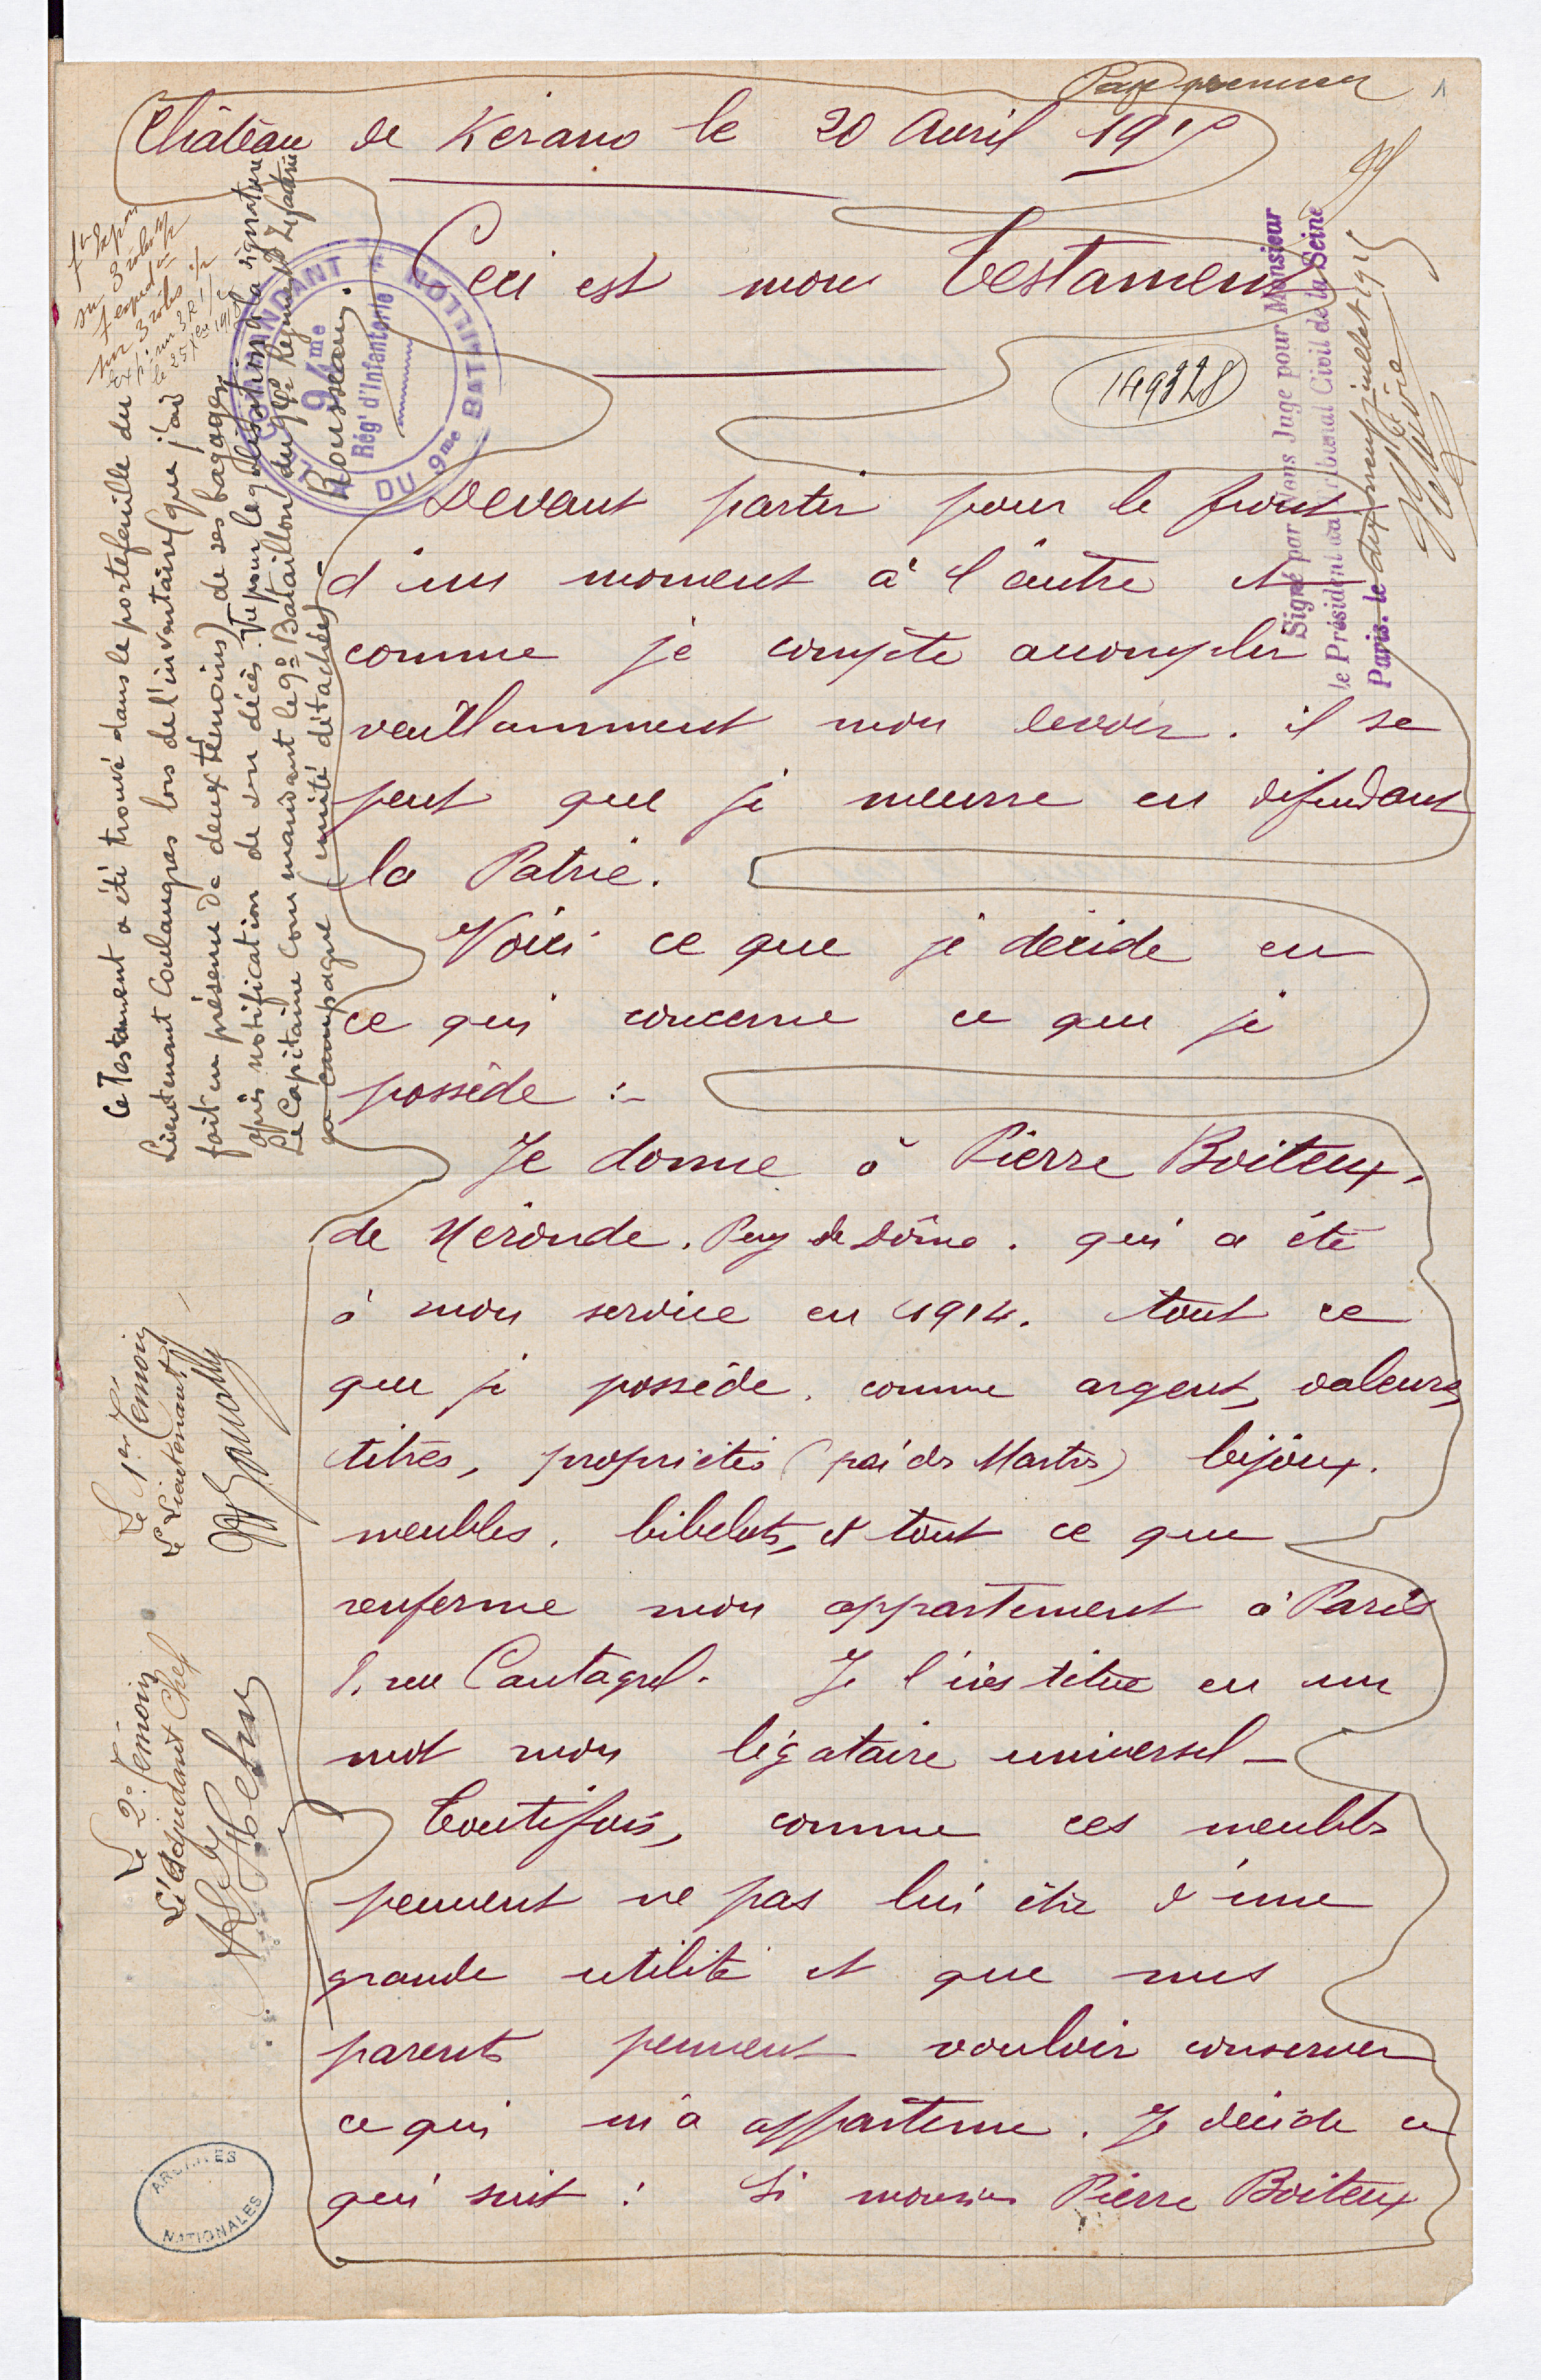 Page premier
1
Château de Kerano le 20 Avril 1915
Ceci est mon Testament
149328
Devant partir pour le front
d'un moment à l'autre et
comme je compte accomplir
vaillamment mon devoir. il se
peut que je meurre en défendant
la Patrie.
Voici ce que je décide en
ce qui concerne ce que je
possède :-
Je donne à Pierre Boiteux,
de Néronde. Puy de Dôme. qui a été
à mon service en 1914. tout ce
que je possède. comme argent, valeurs,
titres, propriétés (près des Martres) bijoux.
meubles. bibelots, et tout ce que
renferme mon appartement à Paris
rue Cantagrel. Je l'institue en un
mot mon légataire universel -
Toutefois, comme ces meubles
peuvent ne pas lui être d'une
grande utilité et que mes
parents peuvent vouloir conserver
ce qui m'a appartenu. Je décide ce
qui suit : Si monsieur Pierre Boiteux
Ce Testament a été trouvé dans le portefeuille du
Lieutenant Coulangras lors de l'inventaire (que j'ai
fait en présence de deux témoins) de ses bagages
après notification de son décès. Vu pour légalisation de la signature
Le Capitaine Commandant le 9e Bataillon du 94e Régiment d'Infanterie
en campagne (unité détachée).
Rousseau.
COMMANDANT
DU 9me BATAILLON
94me
Régt d'Infanterie
Le 1er Témoin
Le Lieutenant
Le 2e Témoin
L'Adjudant Chef
Signé par Nous Juge pour Monsieur
le Président au Tribunal Civil de la Seine
Paris. le dix neuf juillet 1915
ARCHIVES
NATIONALES